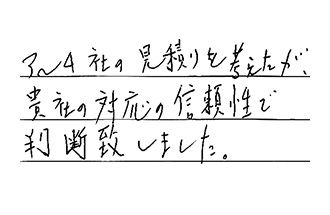 3～4社の見積りを考えたが、
貴社の対応の信頼性で
判断致しました。